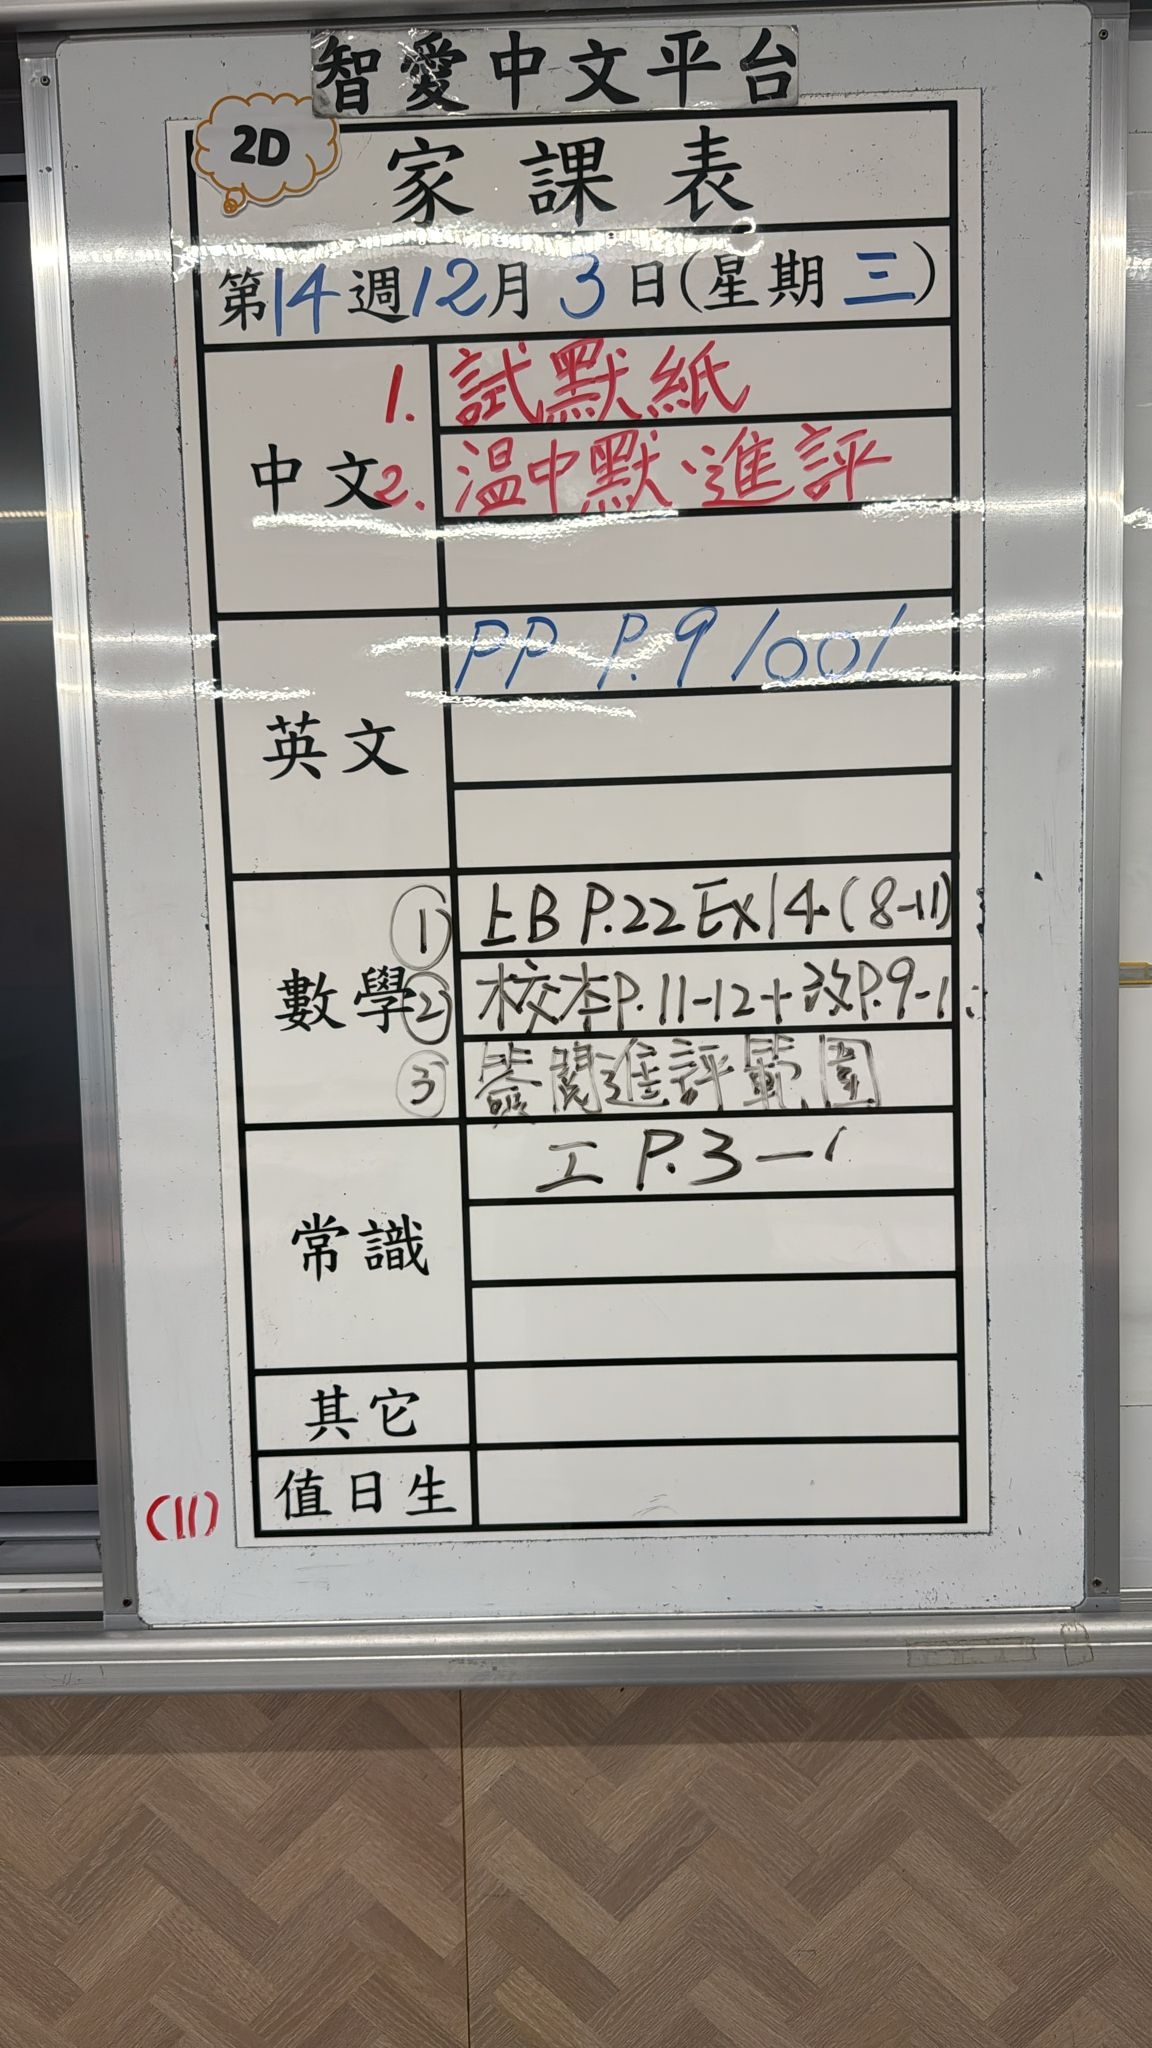 智愛中文平台
2D
家課表
第14週12月3日(星期三)
中文
1. 試默紙
2. 溫中默、進評
英文
PP P.9
數學
① 上B P.22 Ex14 (8-11)
② 校本P.11-12+改P.9-1
③ 簽閱進評範圍
常識
工 P.3-
其它
值日生
(11)